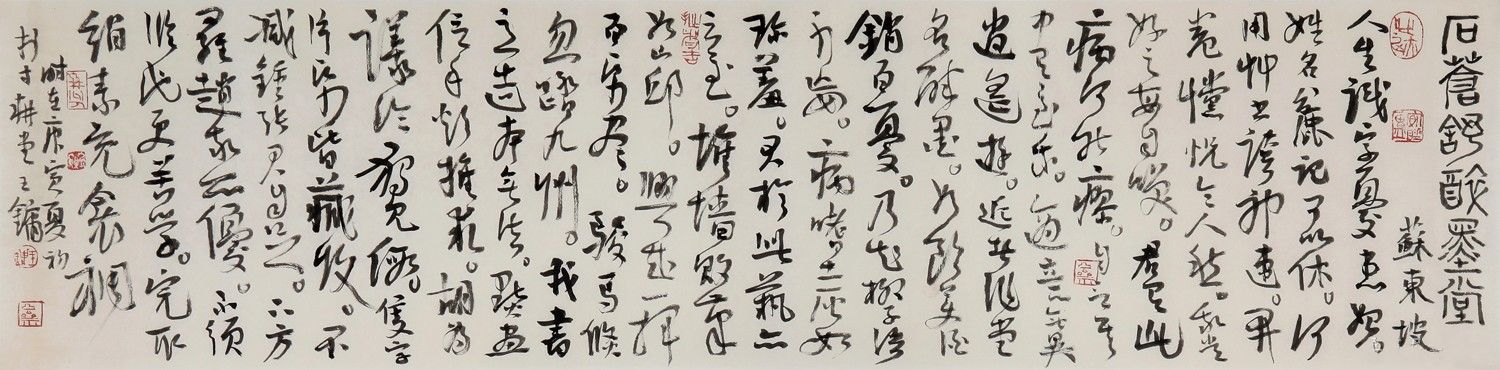 石蒼舒醉墨堂
蘇東坡
人生識字憂患始。
姓名麤記可以休。何
用艸書誇神速。開
卷戃怳令人愁。我嘗
好之每自笑。君有此
病何能瘳。自言其
中有至樂。適意無異
逍遙遊。近者作堂
名醉墨。如飲美酒
銷百憂。乃知柳子語
不妄。病嗜土炭如
珍羞。君於此藝亦
云至。堆墻敗筆
如山邱。興來一揮
百紙盡。駿馬倏
忽踏九州。我書
意造本無法。點畫
信手煩推求。胡為
議論獨見假。隻字
片紙皆藏收。不
減鍾張君自足。下方
羅趙我亦優。不須
臨池更苦學。完取
絹素充衾裯
時在庚寅夏初
於寸耕堂王鏞